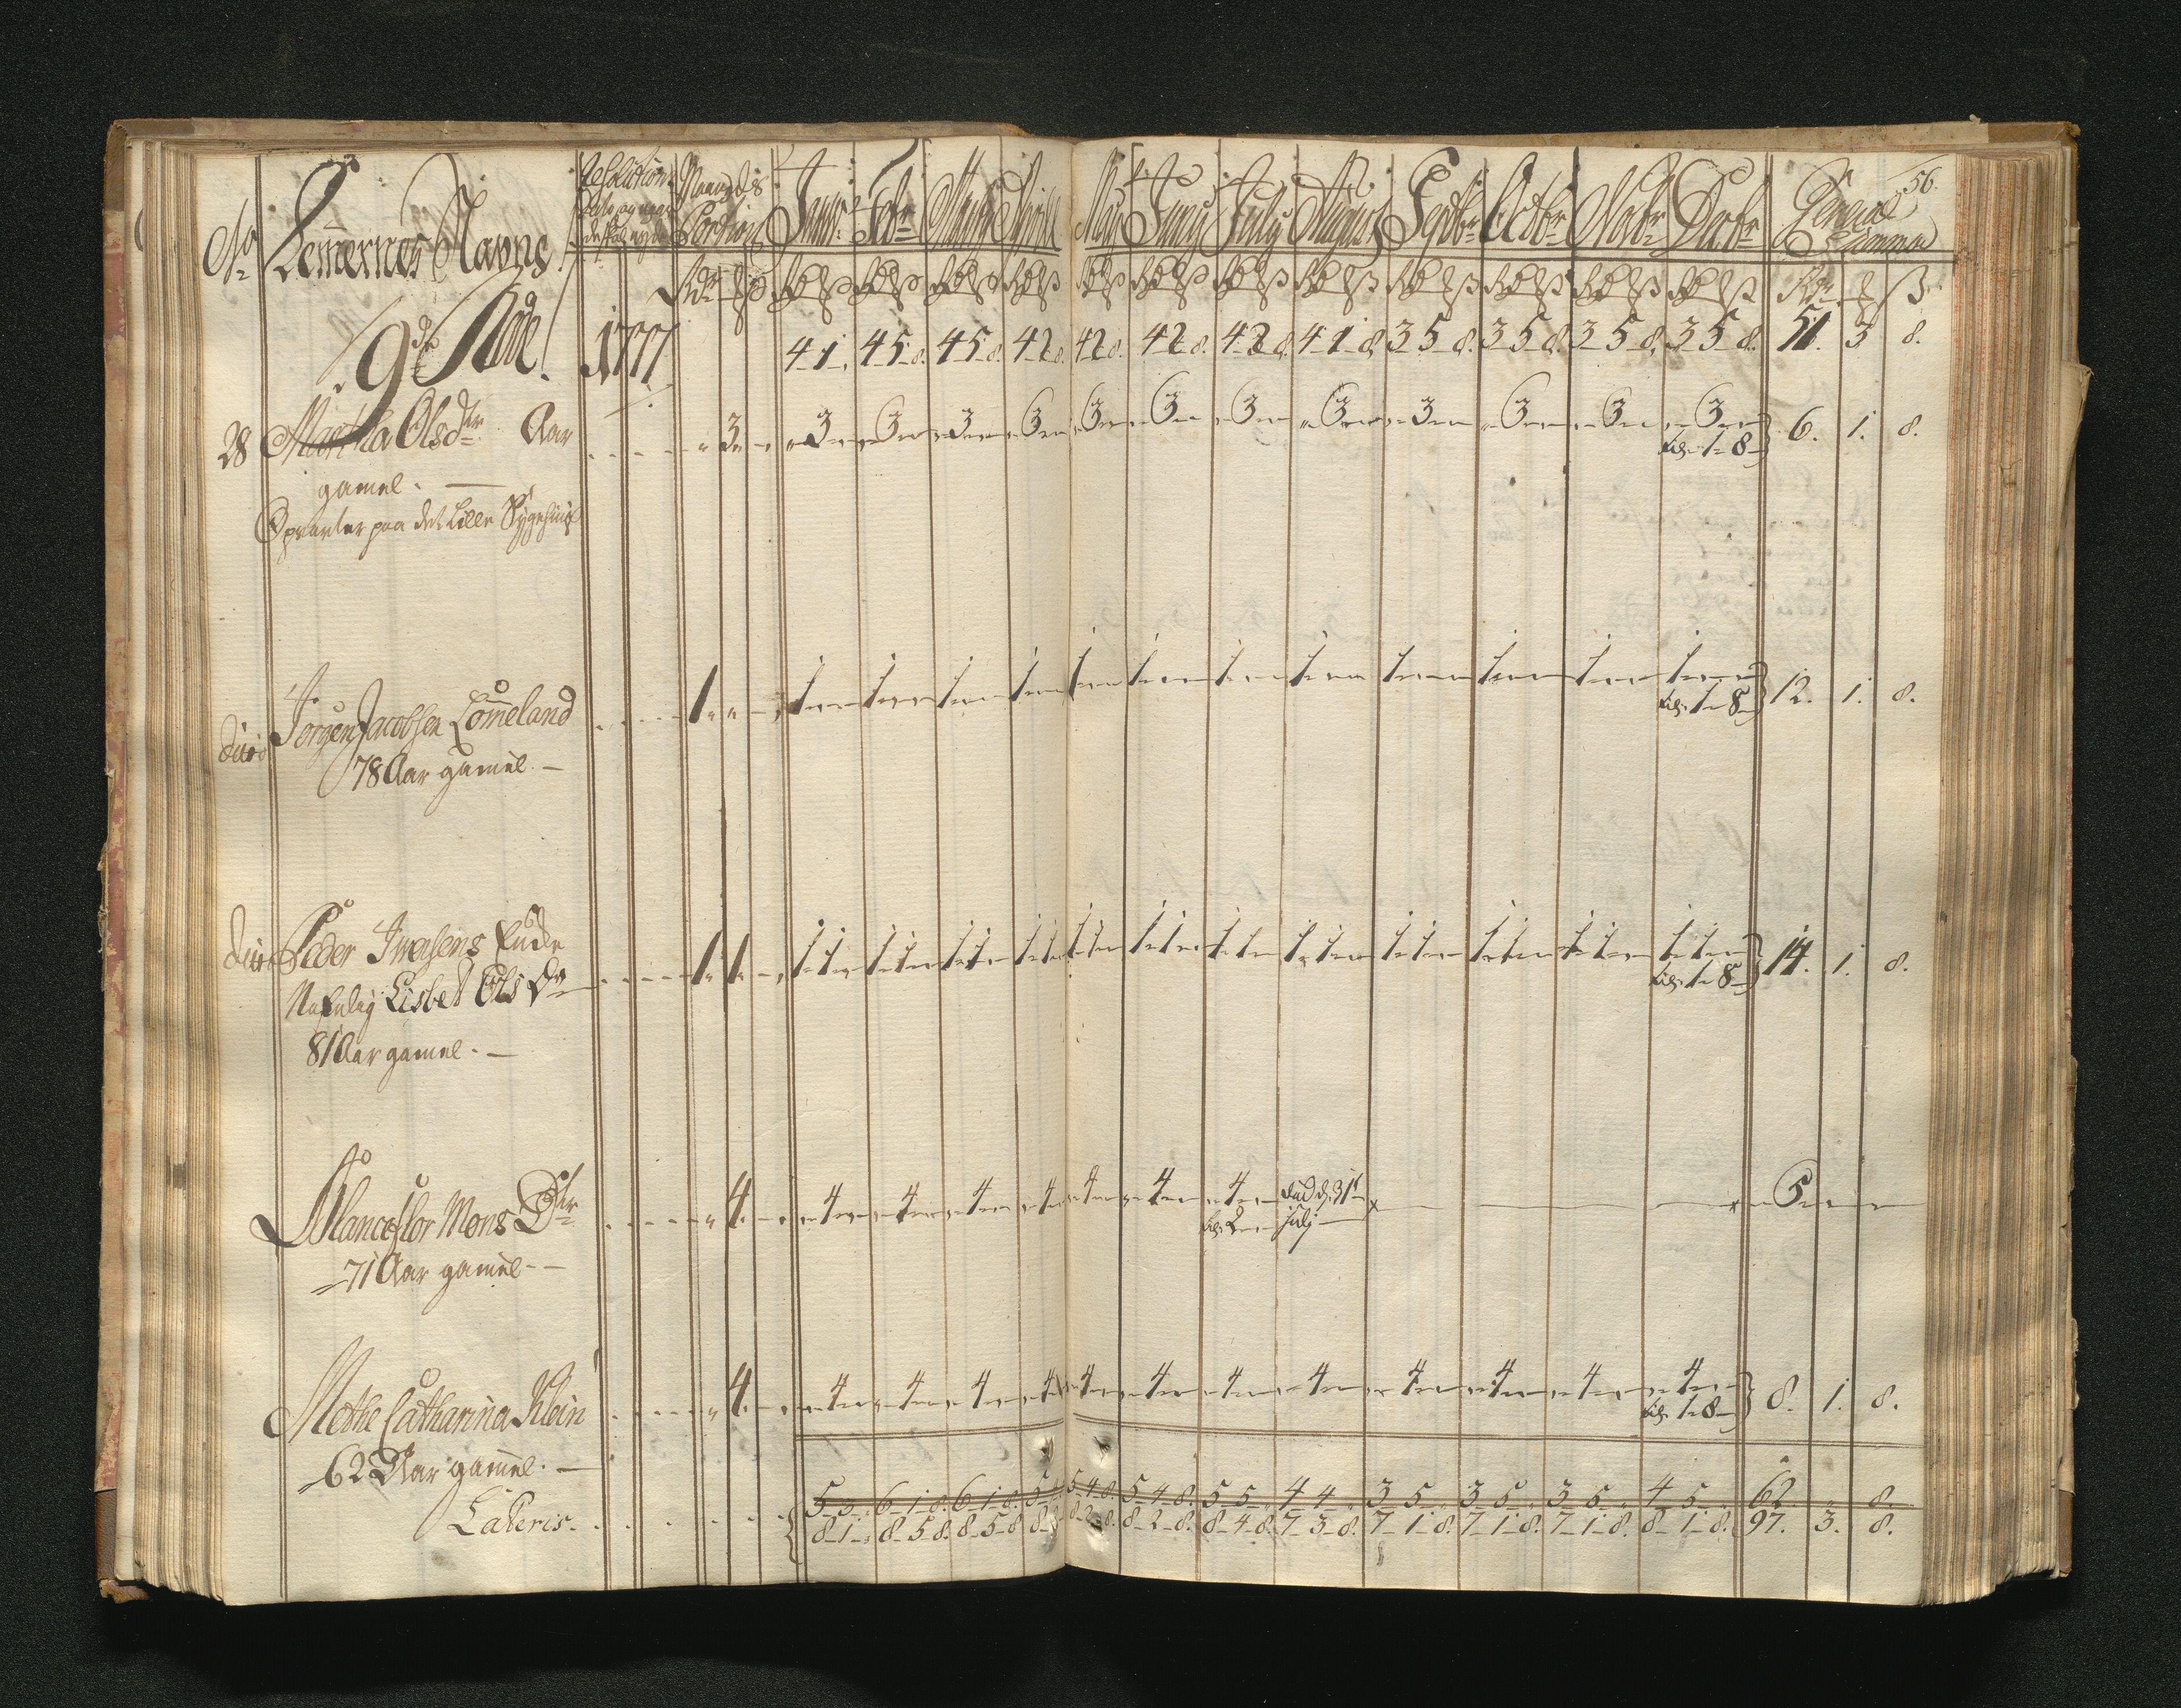 56.
No Lemernes Navne Maaneds Portion Janr: Febr Martz Aprill May Juny July August Septbr Octbr Novbr Decbr General Summa
Rdr ß
9de Rode 1777 4-1-. 4-5-8. 4-5-8. 4-2-8. 4-2-8. 4-2-8. 4-2-8. 4-1-8. 3-5-8. 3-5-8. 3-5-8. 3-5-8. 51. 3 8.
28 Martha Olsdtr Aar 3 3 3 3 3 3 3 3 3 3 3 3 3 6. 1. 8.
1-8
gamel.
Opvarter paa det Lille Sygehuus
Jørgen Jacobsen Lomeland 1 1 1 1 1 1 1 1 1 1 1 1 1 12. 1. 8.
1-8
78 Aar gamel.
Peder Iversens Enke 1 1 1 1 1 1 1 1 1 1 1 1 1 1 1 1 1 1 1 1 1 1 1 1 1 1 14. 1. 8.
1-8
Nafnlig Lisbet Ols Dr
81 Aar gamel.
Blanceflor Mons Dtr 4 4 4 4 4 4 4 4 død d. 31 5
July
71 Aar gamel
Methe Catharina Klein 4 4 4 4 4 4 4 4 4 4 4 4 4 8. 1. 8.
1-8
62 Aar gamel.
5-3 6-1-8. 6-1-8. 5-4-8. 5-4-8. 5-5 4-4 3-5 3-5 3-5 4-5 62 8.
Lateris. 8-1 8-5-8. 8-5-8 8-2-8. 8-2-8. 8-4-8. 7-3-8. 7-1-8. 7-1-8. 7-1-8. 8-1-8. 97. 3. 8.